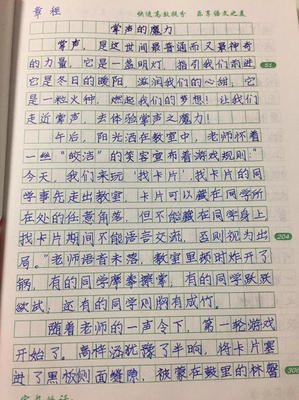 章程
快速高效提分 乐享语文之美
掌声的魔力
掌声,是这世间最普通而又最神奇
的力量,它是一盏明灯,指引我们前进
它是冬日的暖阳,滋润我们的心甜;它
是一粒火种,燃起我们的梦想!让我们
走近掌声,去体验掌声之魔力!
午后,阳光洒在教室中,老师怀着
一丝“皎洁”的笑容宣布着游戏规则:“
今天,我们来玩‘找卡片’,找卡片的同
学事先走出教室,卡片可以藏在同学所
在处的任意角落,但不能藏在同学身上
找卡片期间不能语言交流,否则视为出
局。”老师语音未落,教室里顿时炸开了
锅,有的同学摩拳擦掌,有的同学跃跃
欲试,还有的同学则胸有成竹。
随着老师的一声令下,第一轮游戏
开始了。高梓涵犹豫了半晌,将卡片塞
进了黑板侧面缝隙,被蒙在鼓里的林馨